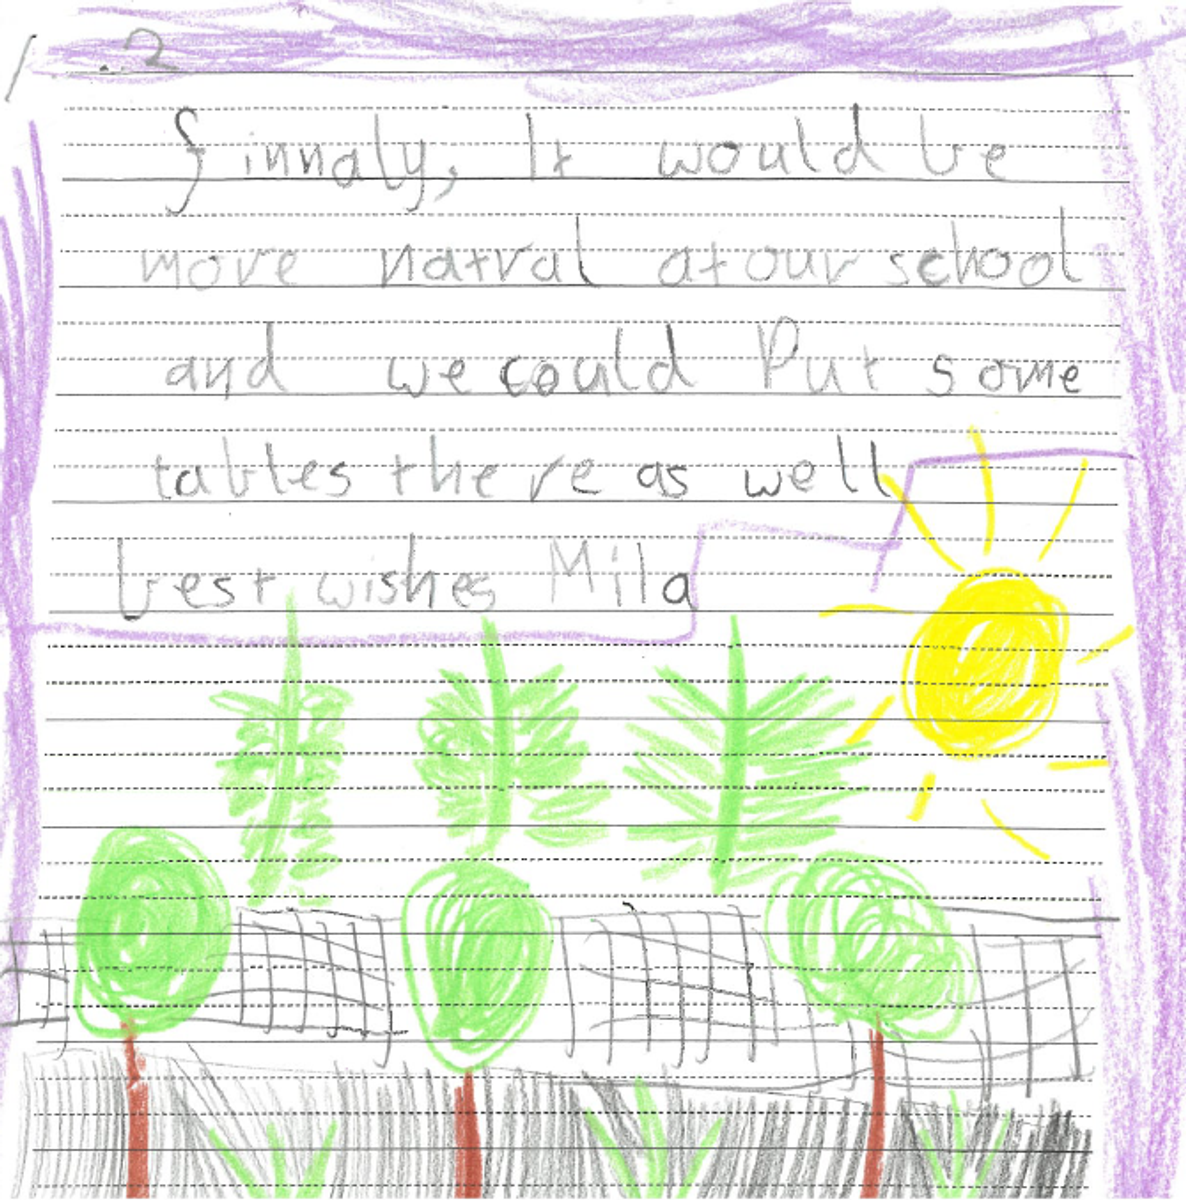 finnaly, It would be
more natral at our school
and we could Put some
tables there as well
best wishes Mila